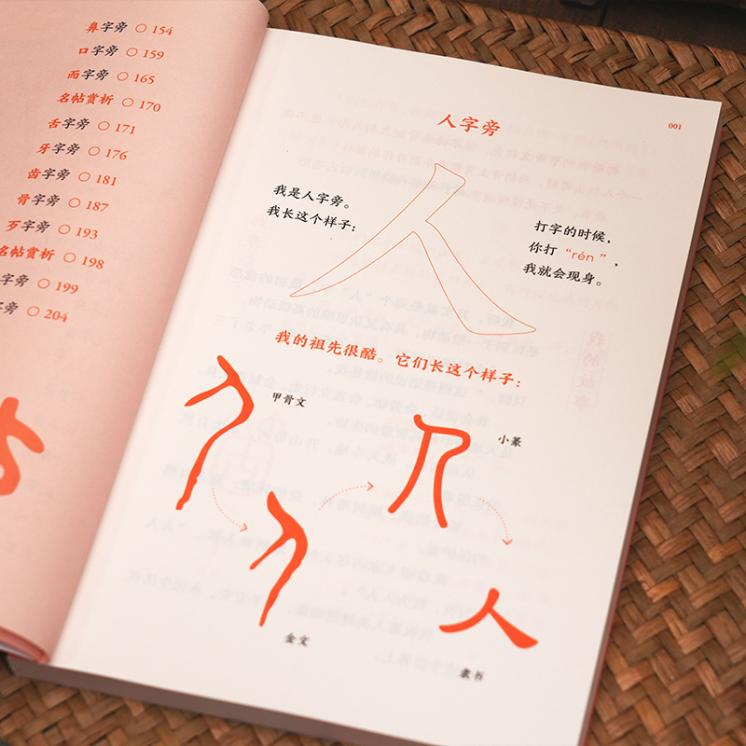 鼻字旁 〇 154
口字旁 〇 159
而字旁 〇 165
名帖赏析 〇 170
舌字旁 〇 171
牙字旁 〇 176
齿字旁 〇 181
骨字旁 〇 187
歹字旁 〇 193
名帖赏析 〇 198
字旁 〇 199
字旁 〇 204
001
人字旁
人
我是人字旁。
我长这个样子:
打字的时候,
你打 “rén”,
我就会现身。
我的祖先很酷。它们长这个样子:
甲骨文
小篆
金文
人
隶书